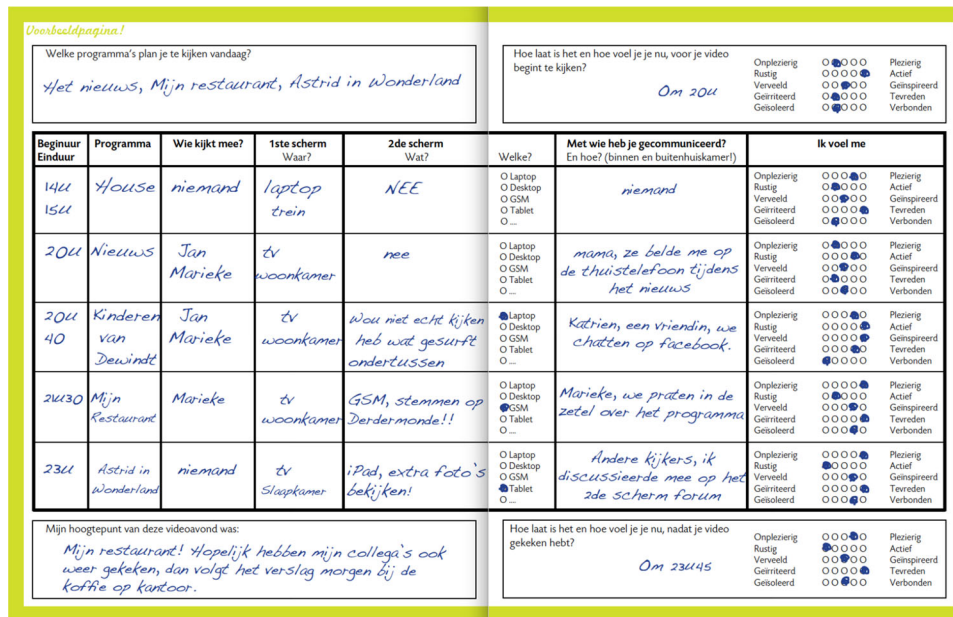 Voorbeeldpagina!
Welke programma's plan je te kijken vandaag?
Het nieuws, Mijn restaurant, Astrid in Wonderland
Hoe laat is het en hoe voel je je nu, voor je video
begint te kijken?
Om 20u
Onplezierig OOOOO Plezierig
Rustig OOOOO Actief
Verveeld OOOOO Geïnspireerd
Geïrriteerd OOOOO Tevreden
Geïsoleerd OOOOO Verbonden
Beginuur
Einduur
Programma
Wie kijkt mee?
1ste scherm
Waar?
2de scherm
Wat?
Welke?
Met wie heb je gecommuniceerd?
En hoe? (binnen en buitenhuiskamer!)
Ik voel me
14u
15u
House
niemand
laptop
trein
NEE
O Laptop
O Desktop
O GSM
O Tablet
O ...
niemand
Onplezierig OOOOO Plezierig
Rustig OOOOO Actief
Verveeld OOOOO Geïnspireerd
Geïrriteerd OOOOO Tevreden
Geïsoleerd OOOOO Verbonden
20u
Nieuws
Jan
Marieke
tv
woonkamer
nee
O Laptop
O Desktop
O GSM
O Tablet
O ...
mama, ze belde me op
de thuistelefoon tijdens
het nieuws
Onplezierig OOOOO Plezierig
Rustig OOOOO Actief
Verveeld OOOOO Geïnspireerd
Geïrriteerd OOOOO Tevreden
Geïsoleerd OOOOO Verbonden
20u
40
Kinderen
van
Dewindt
Jan
Marieke
tv
woonkamer
Wou niet echt kijken
heb wat gesurft
ondertussen
O Laptop
O Desktop
O GSM
O Tablet
O ...
Katrien, een vriendin, we
chatten op facebook.
Onplezierig OOOOO Plezierig
Rustig OOOOO Actief
Verveeld OOOOO Geïnspireerd
Geïrriteerd OOOOO Tevreden
Geïsoleerd OOOOO Verbonden
21u30
Mijn
Restaurant
Marieke
tv
woonkamer
GSM, stemmen op
Derdermonde!!
O Laptop
O Desktop
O GSM
O Tablet
O ...
Marieke, we praten in de
zetel over het programma
Onplezierig OOOOO Plezierig
Rustig OOOOO Actief
Verveeld OOOOO Geïnspireerd
Geïrriteerd OOOOO Tevreden
Geïsoleerd OOOOO Verbonden
23u
Astrid in
Wonderland
niemand
tv
Slaapkamer
iPad, extra foto's
bekijken!
O Laptop
O Desktop
O GSM
O Tablet
O ...
Andere kijkers, ik
discussieerde mee op het
2de scherm forum
Onplezierig OOOOO Plezierig
Rustig OOOOO Actief
Verveeld OOOOO Geïnspireerd
Geïrriteerd OOOOO Tevreden
Geïsoleerd OOOOO Verbonden
Mijn hoogtepunt van deze videoavond was:
Mijn restaurant! Hopelijk hebben mijn collega's ook
weer gekeken, dan volgt het verslag morgen bij de
koffie op kantoor.
Hoe laat is het en hoe voel je je nu, nadat je video
gekeken hebt?
Om 23u45
Onplezierig OOOOO Plezierig
Rustig OOOOO Actief
Verveeld OOOOO Geïnspireerd
Geïrriteerd OOOOO Tevreden
Geïsoleerd OOOOO Verbonden